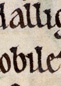 lallig
obiles